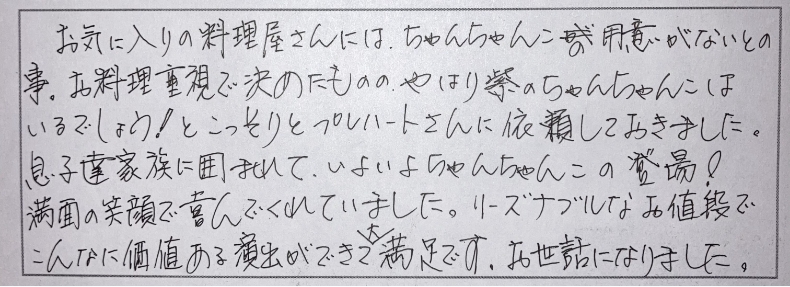 お気に入りの料理屋さんには、ちゃんちゃんこの用意がないとの
事。お料理重視で決めたものの、やはり紫のちゃんちゃんこは
いるでしょう!とこっそりとプレハートさんに依頼しておきました。
息子達家族に囲まれて、いよいよちゃんちゃんこの登場!
満面の笑顔で喜んでくれていました。リーズナブルなお値段で
こんなに価値ある演出ができて大満足です。お世話になりました。